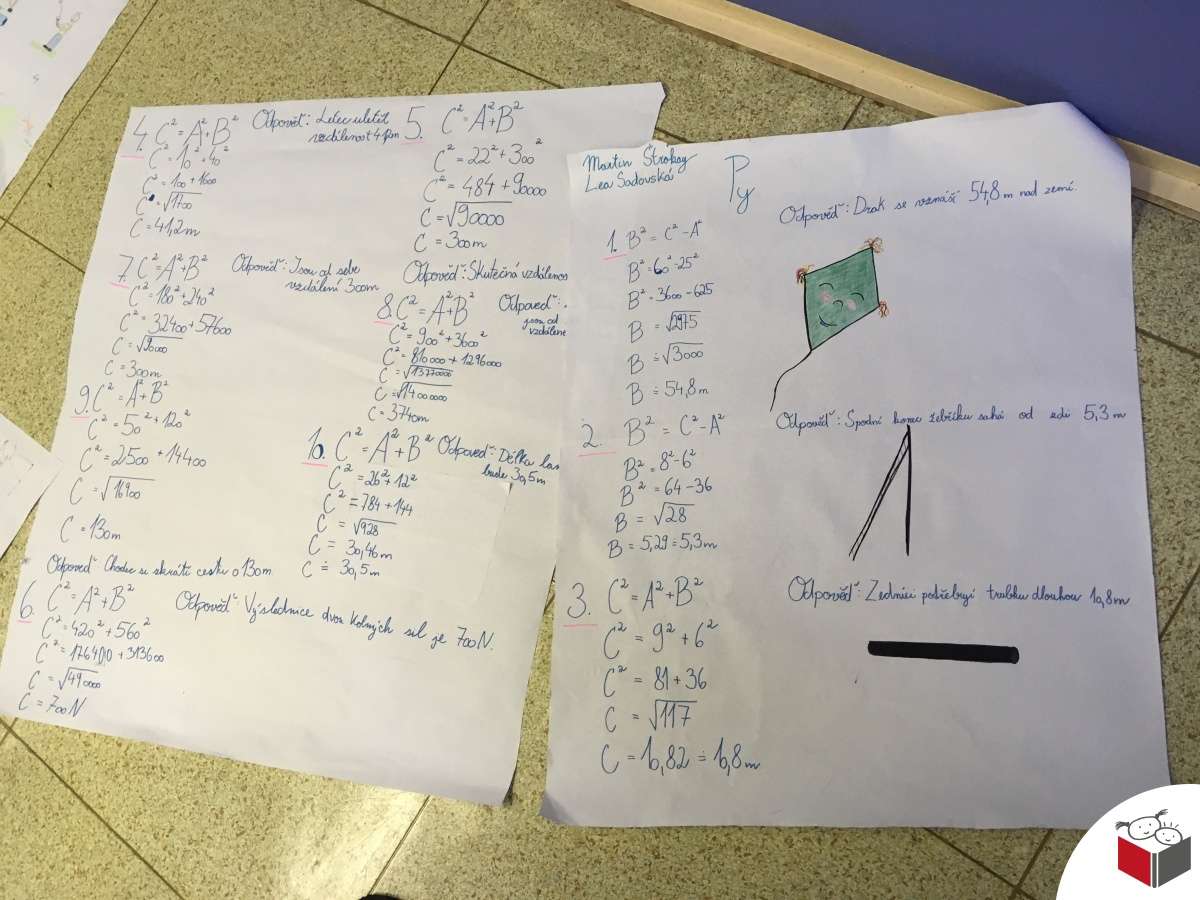 4. C² = A² + B²
C² = 10² + 40²
C² = 100 + 1600
C = √1700
C = 41,2m
Odpověď: Letec uletěl
vzdálenost 41km
5. C² = A² + B²
C² = 22² + 300²
C² = 484 + 90000
C = √90000
C = 300m
Odpověď: Skutečná vzdálenos
7. C² = A² + B²
C² = 180² + 240²
C² = 32400 + 57600
C = √90000
C = 300m
Odpověď: Jsou od sebe
vzdáleni 300m
8. C² = A² + B²
C² = 900² + 3600²
C² = 810000 + 1296000
C = √13770000
C = √14000000
C = 3740m
Odpověď:
jsou od
vzdálene
9. C² = A² + B²
C² = 50² + 120²
C² = 2500 + 14400
C = √16900
C = 130m
Odpověď: Chodec si zkrátí cestu o 130m
10. C² = A² + B²
C² = 26² + 12²
C² = 784 + 144
C = √928
C = 30,46m
C ≐ 30,5m
Odpověď: Délka lan
bude 30,5m
6. C² = A² + B²
C² = 420² + 560²
C² = 176400 + 313600
C = √490000
C = 700N
Odpověď: Výslednice dvou kolmých sil je 700N.
Martin
Lea Sadovská
Py
1. B² = C² - A²
B² = 60² - 25²
B² = 3600 - 625
B = √2975
B ≐ √3000
B ≐ 54,8m
Odpověď: Drak se vznáší 54,8m nad zemí.
2. B² = C² - A²
B² = 8² - 6²
B² = 64 - 36
B = √28
B = 5,29 = 5,3m
Odpověď: Spodní konec žebříku sahá od zdi 5,3m
3. C² = A² + B²
C² = 9² + 6²
C² = 81 + 36
C = √117
C = 10,82 ≐ 10,8m
Odpověď: Zedníci potřebují trubku dlouhou 10,8m